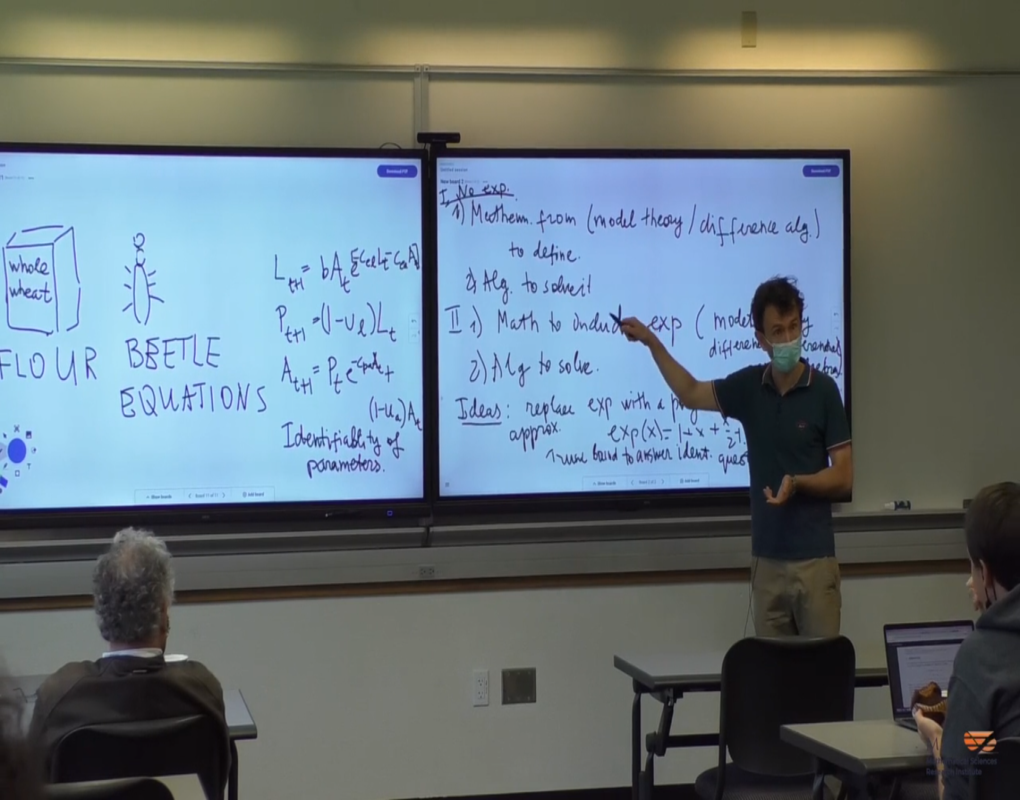 whole
wheat
FLOUR BEETLE
EQUATIONS
L_{t+1} = bA_t e^{-c_{el}L_t - c_{ea}A_t}
P_{t+1} = (1-u_l)L_t
A_{t+1} = P_t e^{-c_{pa}A_t} +
(1-u_a)A_t
Identifiability of
parameters.
Download PDF
I. No exp.
1) Mathem. from (model theory / difference alg.)
to define.
2) Alg. to solve it
II 1) Math to exp (
2) Alg to solve.
Ideas: replace exp with a
approx. exp(x) = 1 + x +
use bound to answer ident.
Download PDF